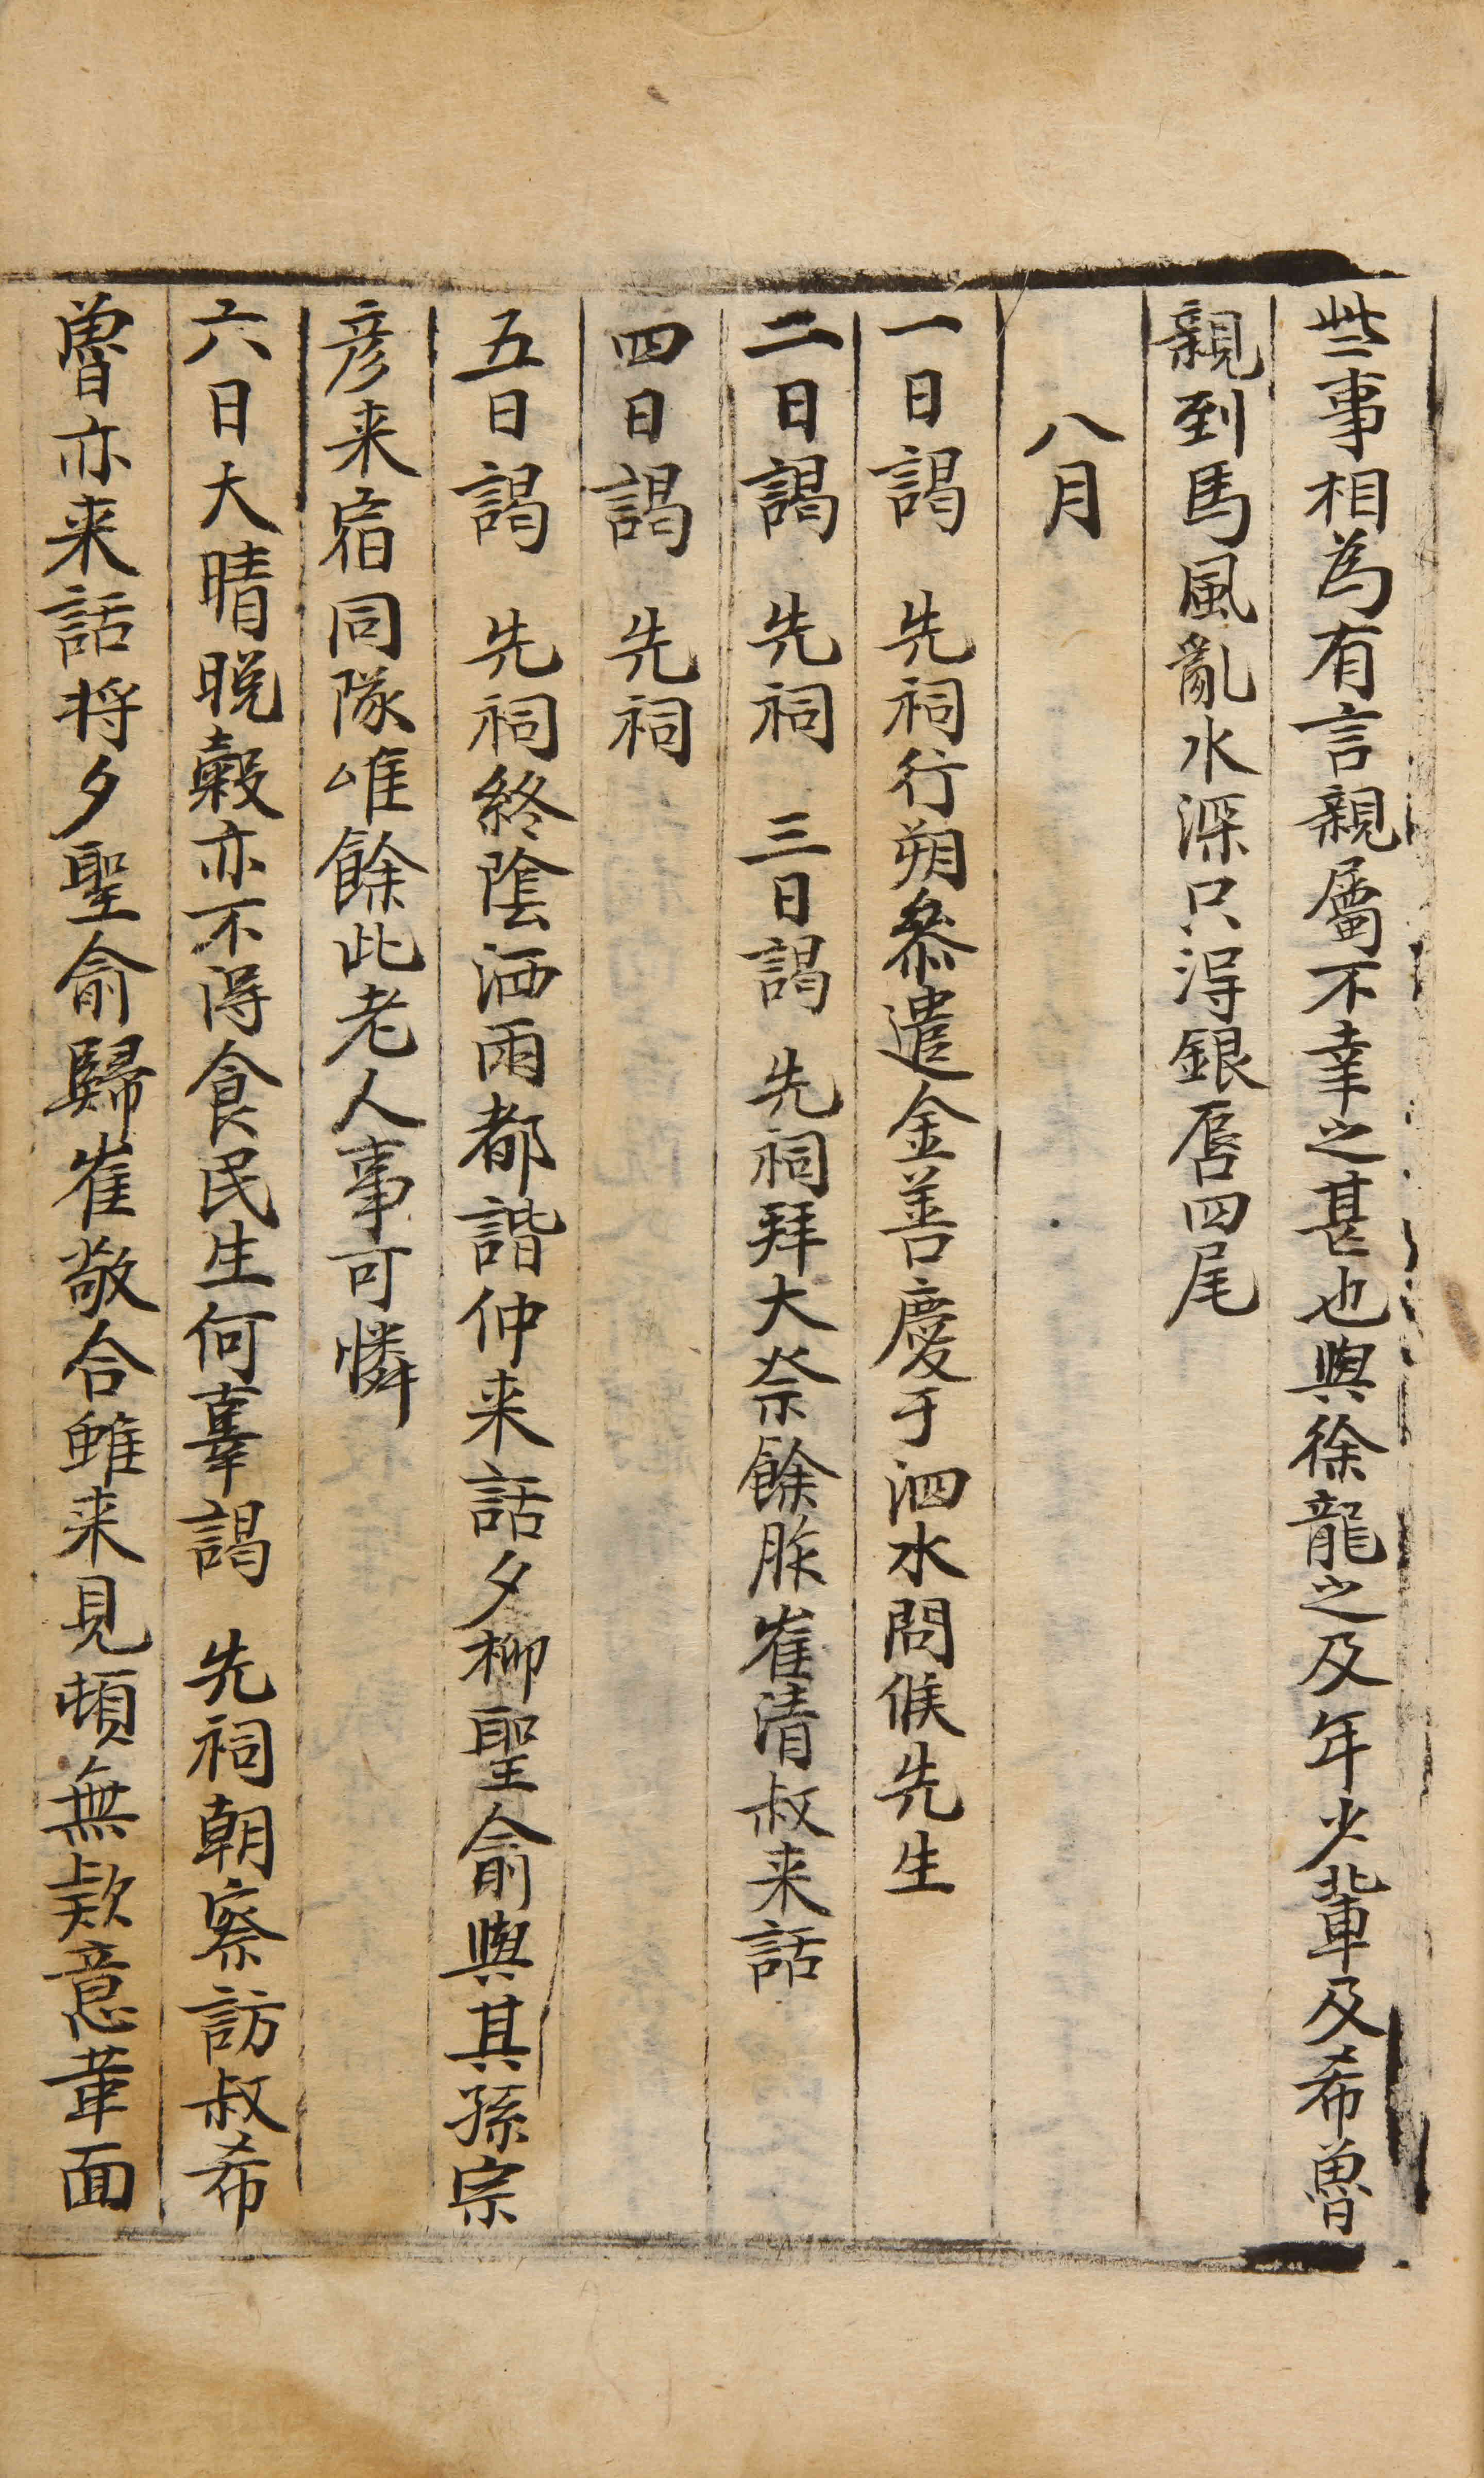 些事相為有言親屬不幸之甚也與徐龍之及年少輩及希魯
親到馬風亂水深只得銀唇四尾
八月
一日謁 先祠行朔叅遣金善慶于泗水問候先生
二日謁 先祠 三日謁 先祠拜大祭餘胙崔清叔来話
四日謁 先祠
五日謁 先祠終陰洒雨都諧仲来話夕柳聖俞與其孫宗
彦来宿同隊唯餘此老人事可憐
六日大晴晩穀亦不得食民生何辜謁 先祠朝察訪叔希
魯亦来話将夕聖俞歸崔敬合雖来見頓無欵意革面